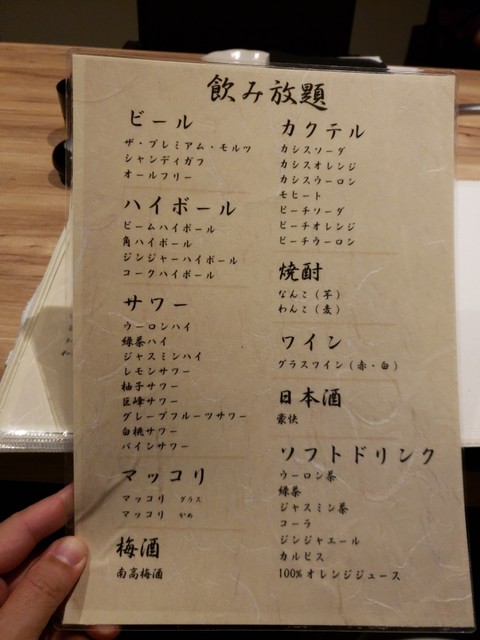 飲み放題
ビール
ザ・プレミアム・モルツ
シャンディガフ
オールフリー
ハイボール
ビームハイボール
角ハイボール
ジンジャーハイボール
コークハイボール
サワー
ウーロンハイ
緑茶ハイ
ジャスミンハイ
レモンサワー
柚子サワー
巨峰サワー
グレープフルーツサワー
白桃サワー
パインサワー
マッコリ
マッコリ グラス
マッコリ かめ
梅酒
南高梅酒
カクテル
カシスソーダ
カシスオレンジ
カシスウーロン
モヒート
ピーチソーダ
ピーチオレンジ
ピーチウーロン
焼酎
なんこ(芋)
わんこ(麦)
ワイン
グラスワイン(赤・白)
日本酒
豪快
ソフトドリンク
ウーロン茶
緑茶
ジャスミン茶
コーラ
ジンジャエール
カルピス
100%オレンジジュース